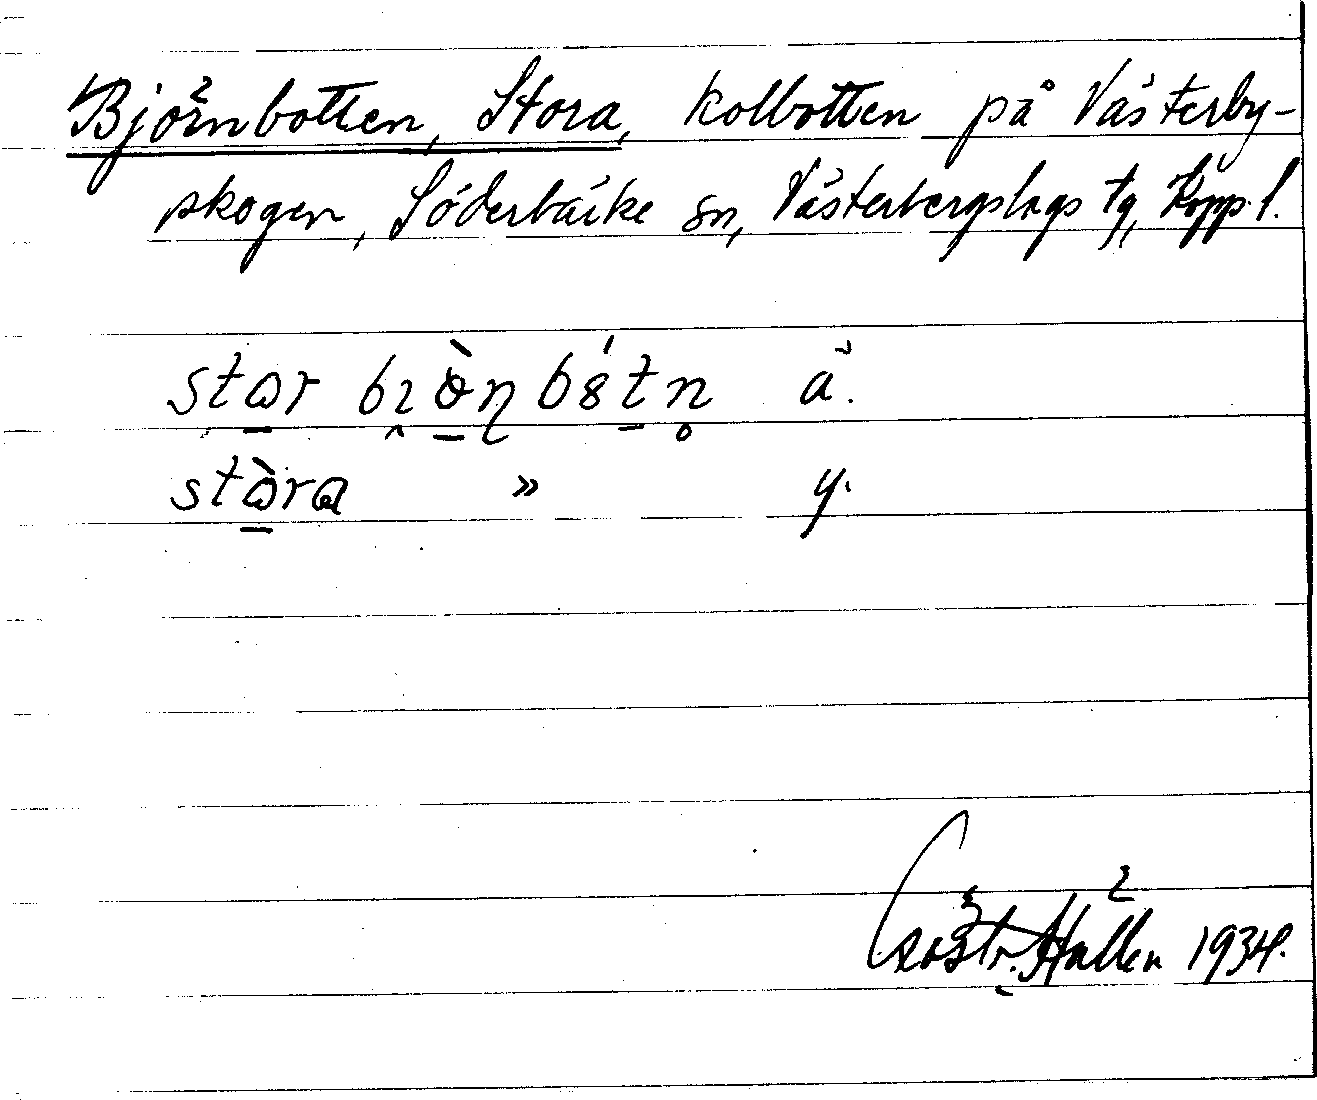 Björnbotten, Stora, kolbotten på Västerby-
skogen, Söderbärke sn, Västerbergslags tg, Kopp. l.
stɷr bıön bȣtn ä.
stɷ̀ra » y.
Hallén 1934.